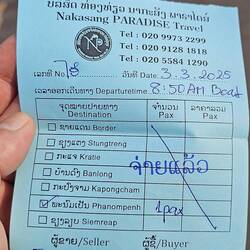 ບໍລິສັດ ທ່ອງທ່ຽວ ນາກະສັງ ພາຣາໄດສ໌
Nakasang PARADISE Travel
Tel : 020 9973 2299
Tel : 020 9128 1818
Tel : 020 5584 1290
ເລກທີ No. ວັນທີ Date 3.3.2025
ເວລາອອກເດີນທາງ Departuretime 8:50AM Boat
ຈຸດໝາຍປາຍທາງ ຈຳນວນ ລາຄາລວມ
Destination Pax Pax
ຊາຍແດນ Border
ຊຽງແຕງ Stungtreng
ກະແຈ Kratie
ບ້ານດົງ Banlong
ຈ່າຍແລ້ວ
ກະປົງຈາມ Kapongcham
ພະນົມເປັນ Phanompenh 1pax
ຊຽງລຽບ Siemreap
ຜູ້ຂາຍ/Seller ຜູ້ຊື້/Buyer